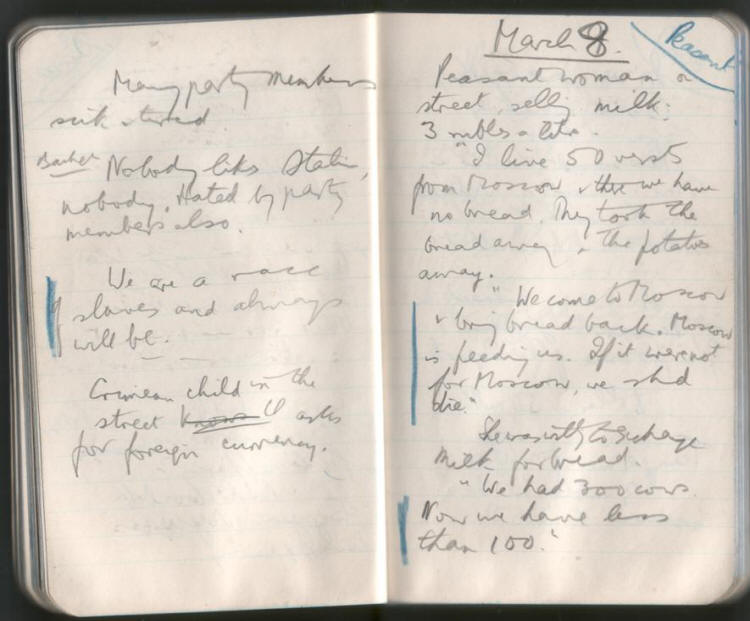 Many party members
sick & tired
Nobody likes Stalin,
nobody. Hated by party
members also.
We are a race
slaves and always
will be.
Crimean child in the
street knows U asks
for foreign currency.
March 8.
Peasant
Peasant woman on
street, selling milk;
3 rubles a litre.
"I live 50 versts
from Moscow & there we have
no bread. They took the
bread away & the potatoes
away.
" We come to Moscow
& bring bread back. Moscow
is feeding us. If it were not
for Moscow, we shd
die."
She was to exchange
milk for bread.
"We had 300 cows.
Now we have less
than 100."